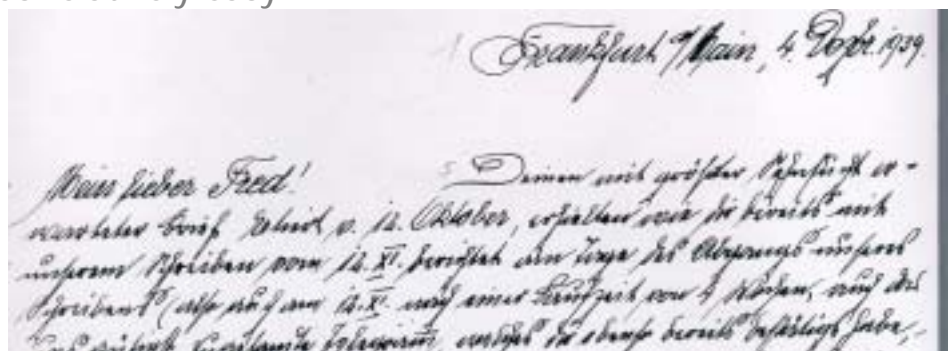 Frankfurt a/Main, 4. Dezbr. 1939.
Mein lieber Fred! Deinen mit größter Sehnsucht er-
warteten Brief v. 12. Oktober, erhielten wie Dir bereits mit
unserem Schreiben vom 12. XI. berichtet am Tage des Abgangs unseres
Schreibens (also auch am 12. XI. nach einer Laufzeit von 4 Wochen, auch das
Telegramm, welches Dir ebenso bereits bestätigt habe,